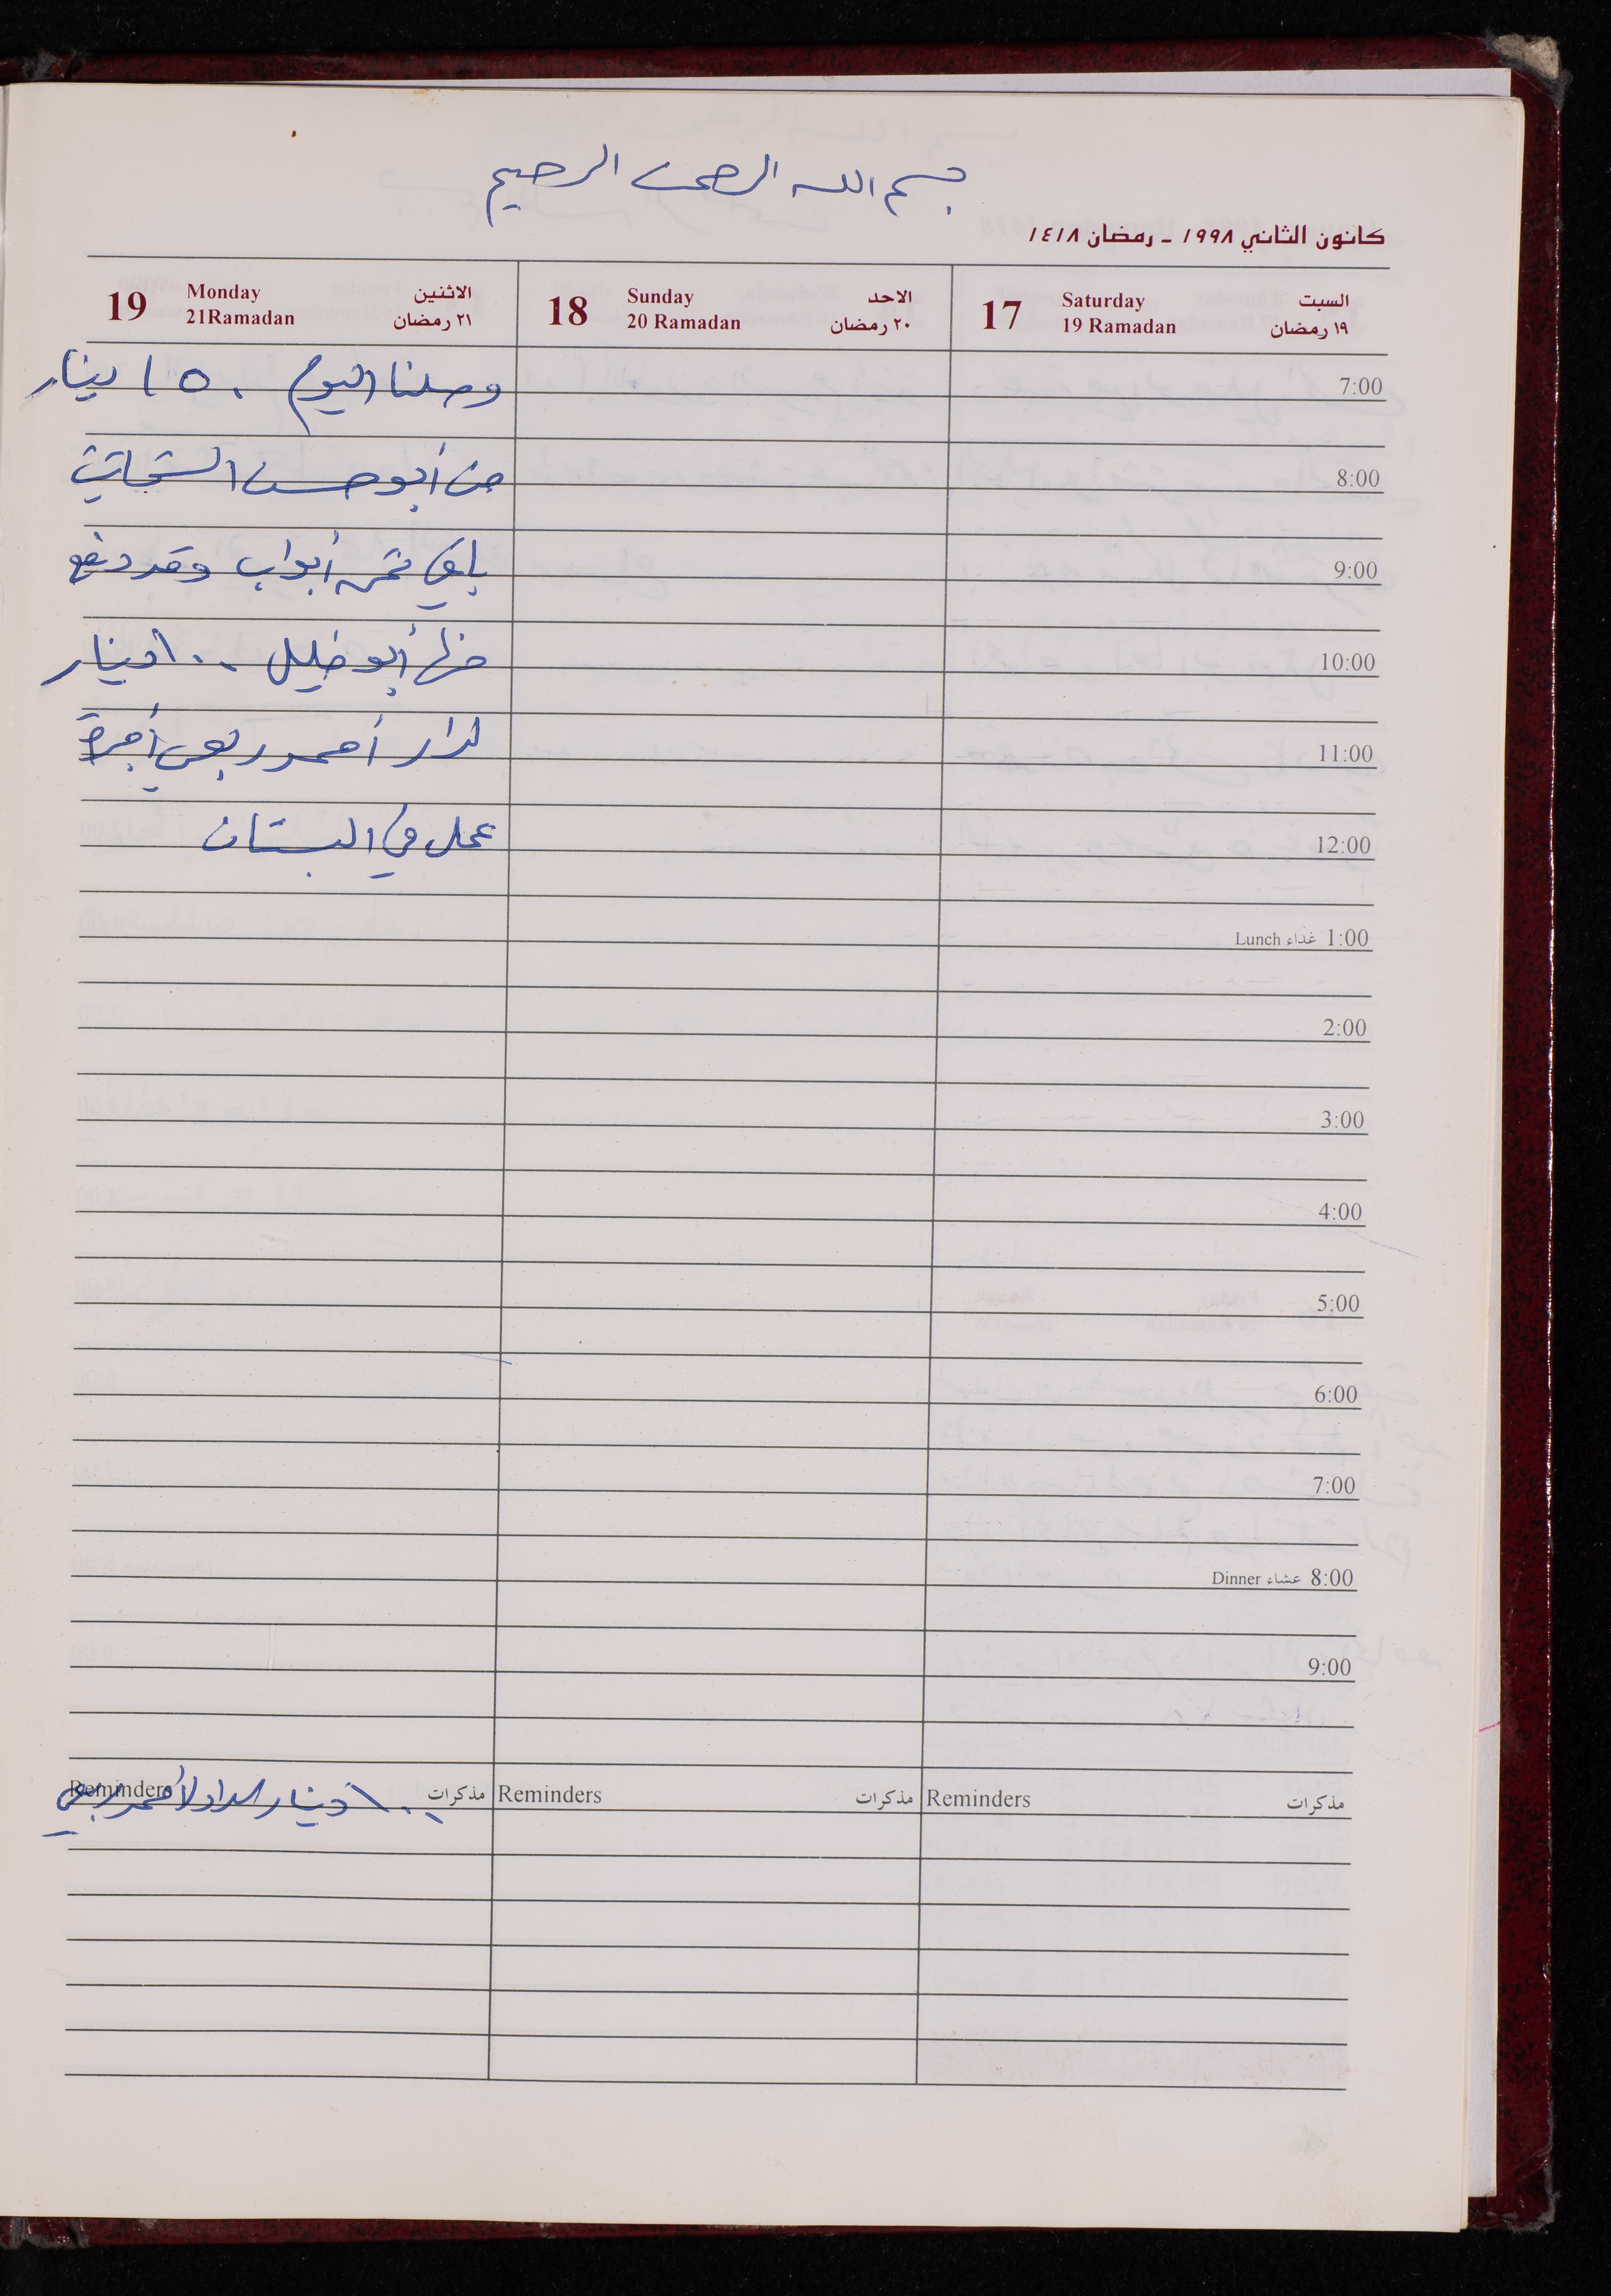 بسم الله الرحمن الرحيم
كانون الثاني ١٩٩٨ - رمضان ١٤١٨
17 Saturday السبت
19 Ramadan ١٩ رمضان
18 Sunday الاحد
20 Ramadan ٢٠ رمضان
19 Monday الاثنين
21Ramadan ٢١ رمضان
7:00
8:00
9:00
10:00
11:00
12:00
Lunch غداء 1:00
2:00
3:00
4:00
5:00
6:00
7:00
Dinner عشاء 8:00
9:00
وصلنا اليوم ١٥٠ دينار
من أبو حسن
باقي ثمن أبواب وقد دفع
منها أبو خليل ١٠٠ دينار
لدار أحمد ربعي أجرة
عمل في البستان
Reminders مذكرات
Reminders مذكرات
Reminders مذكرات
١٠٠ دينار لأحمد ربعي